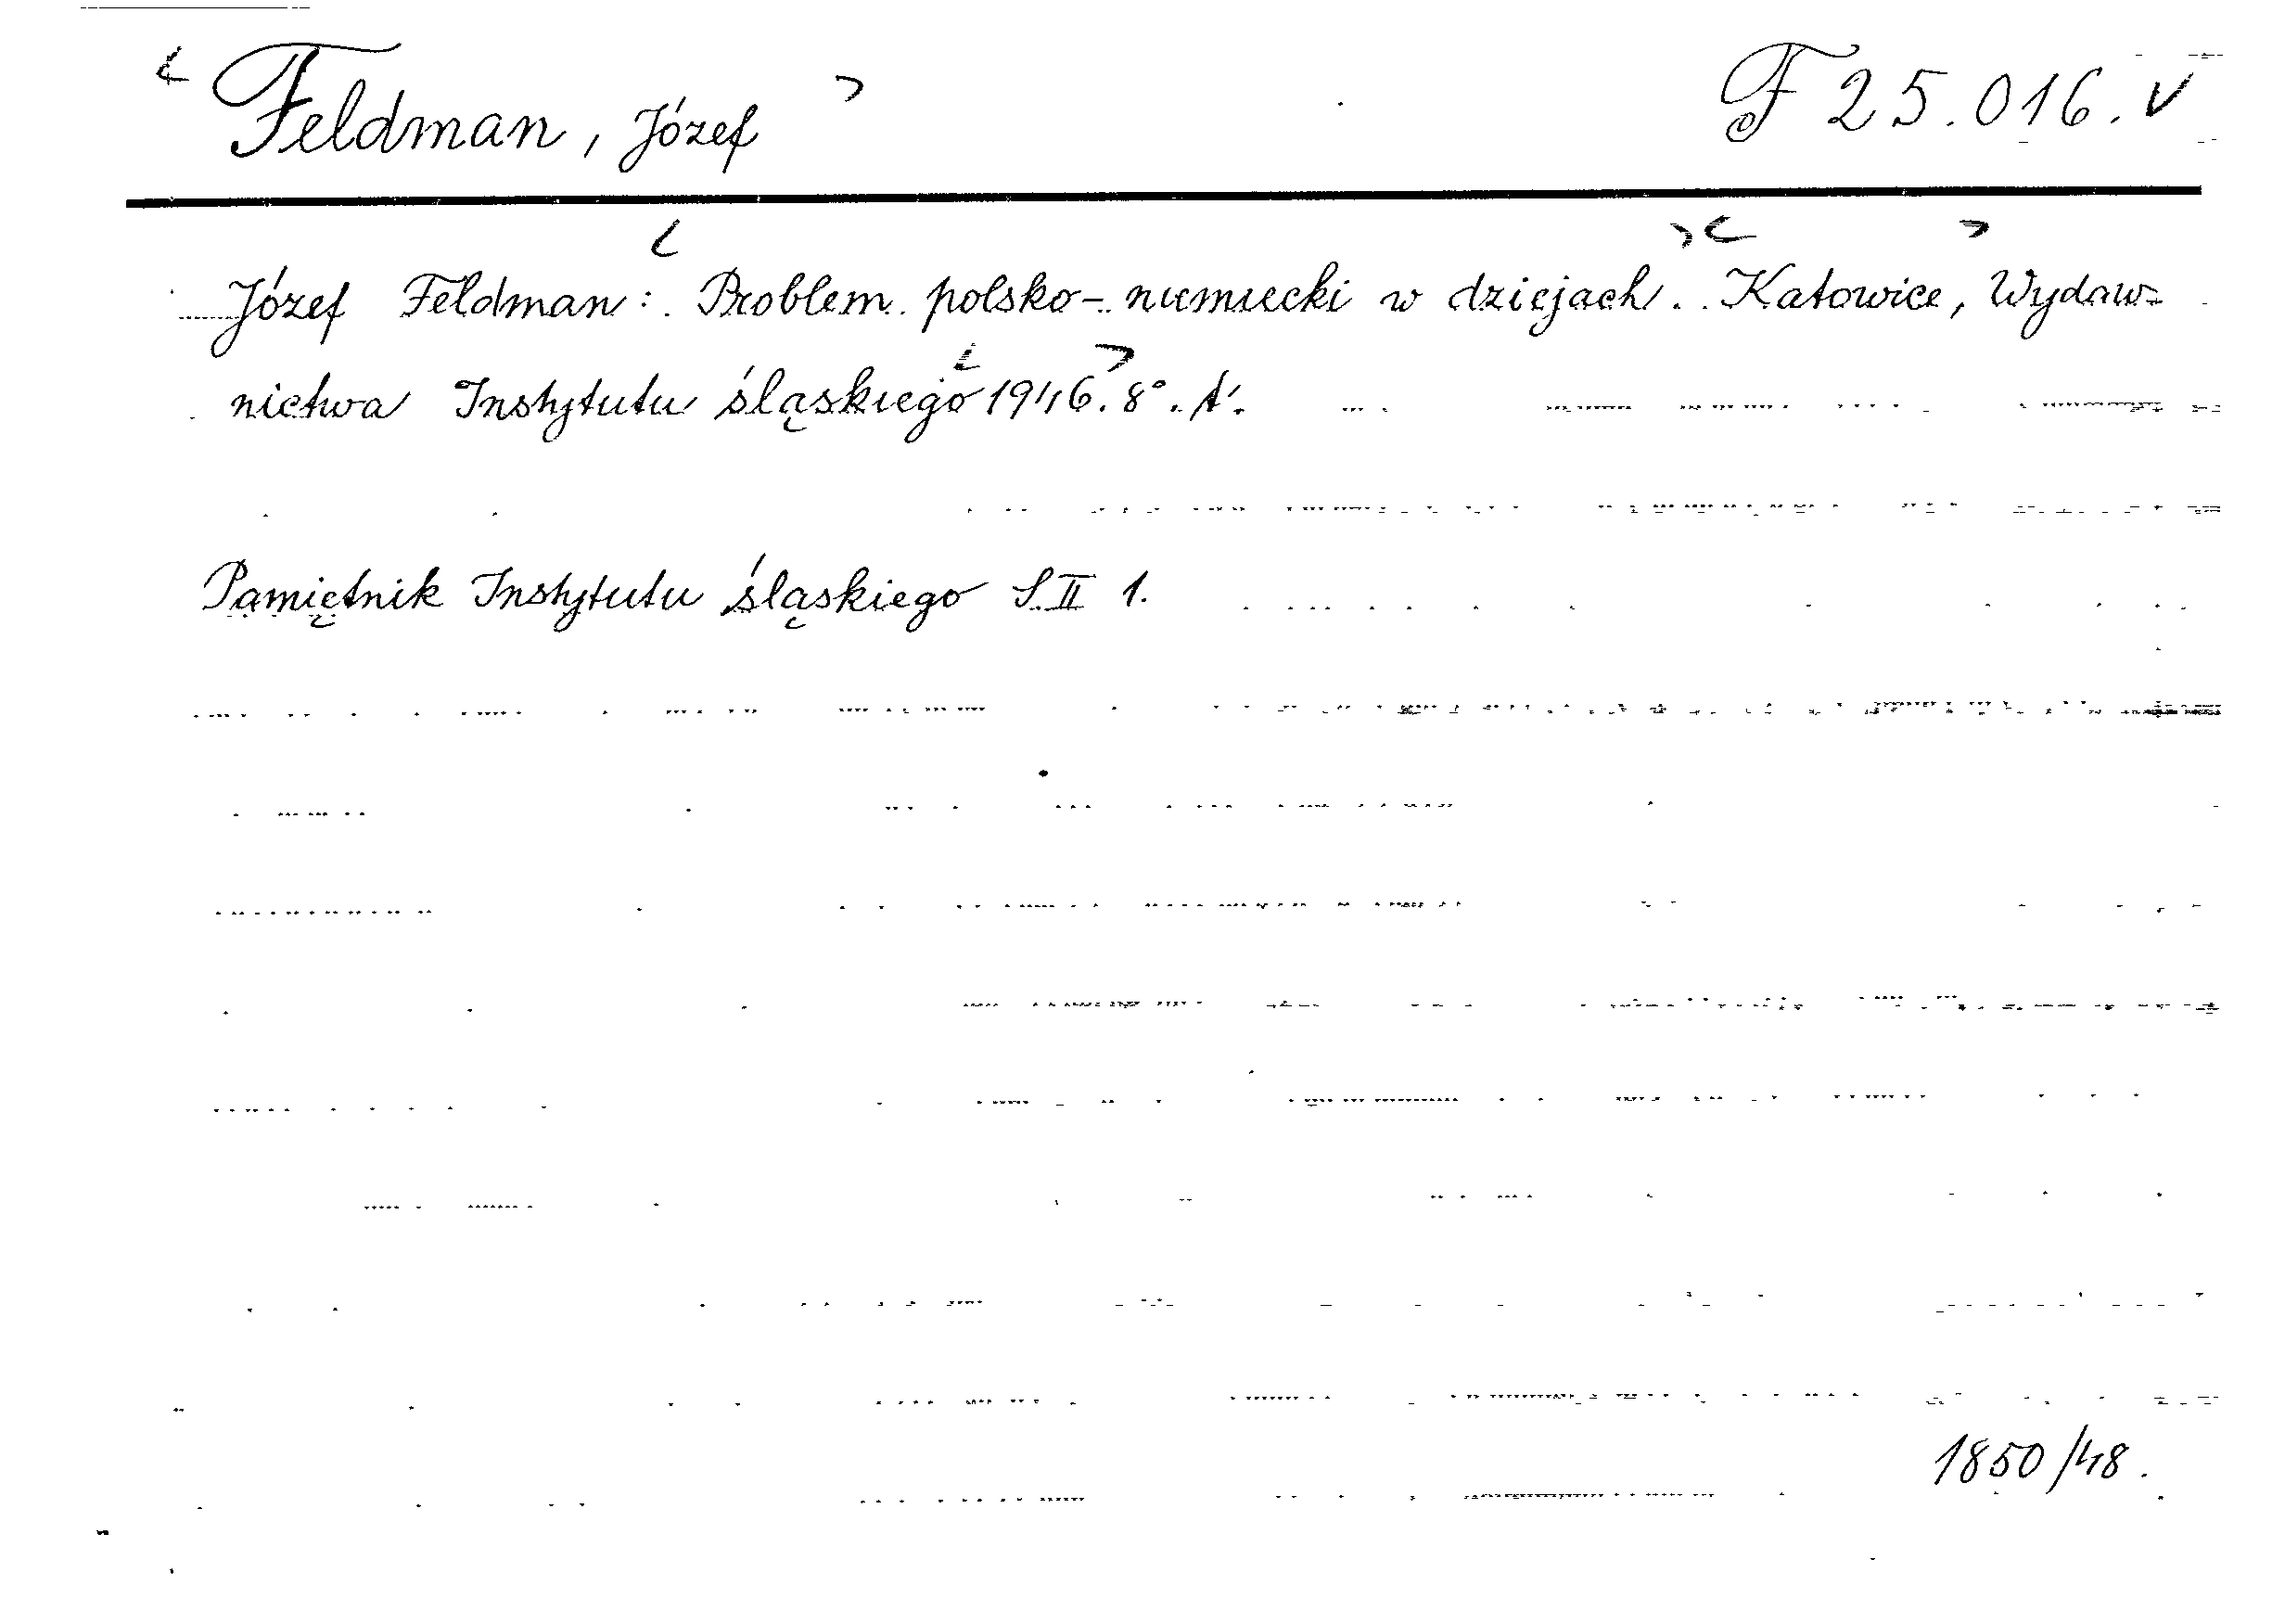 < Feldman, Józef > F 25.016. v
Józef Feldman: < Problem polsko-niemiecki w dziejach. > < Katowice, > Wydaw=
nictwa Instytutu śląskiego < 1946. > 8°.
Pamiętnik Instytutu śląskiego S.II 1.
1850/48.